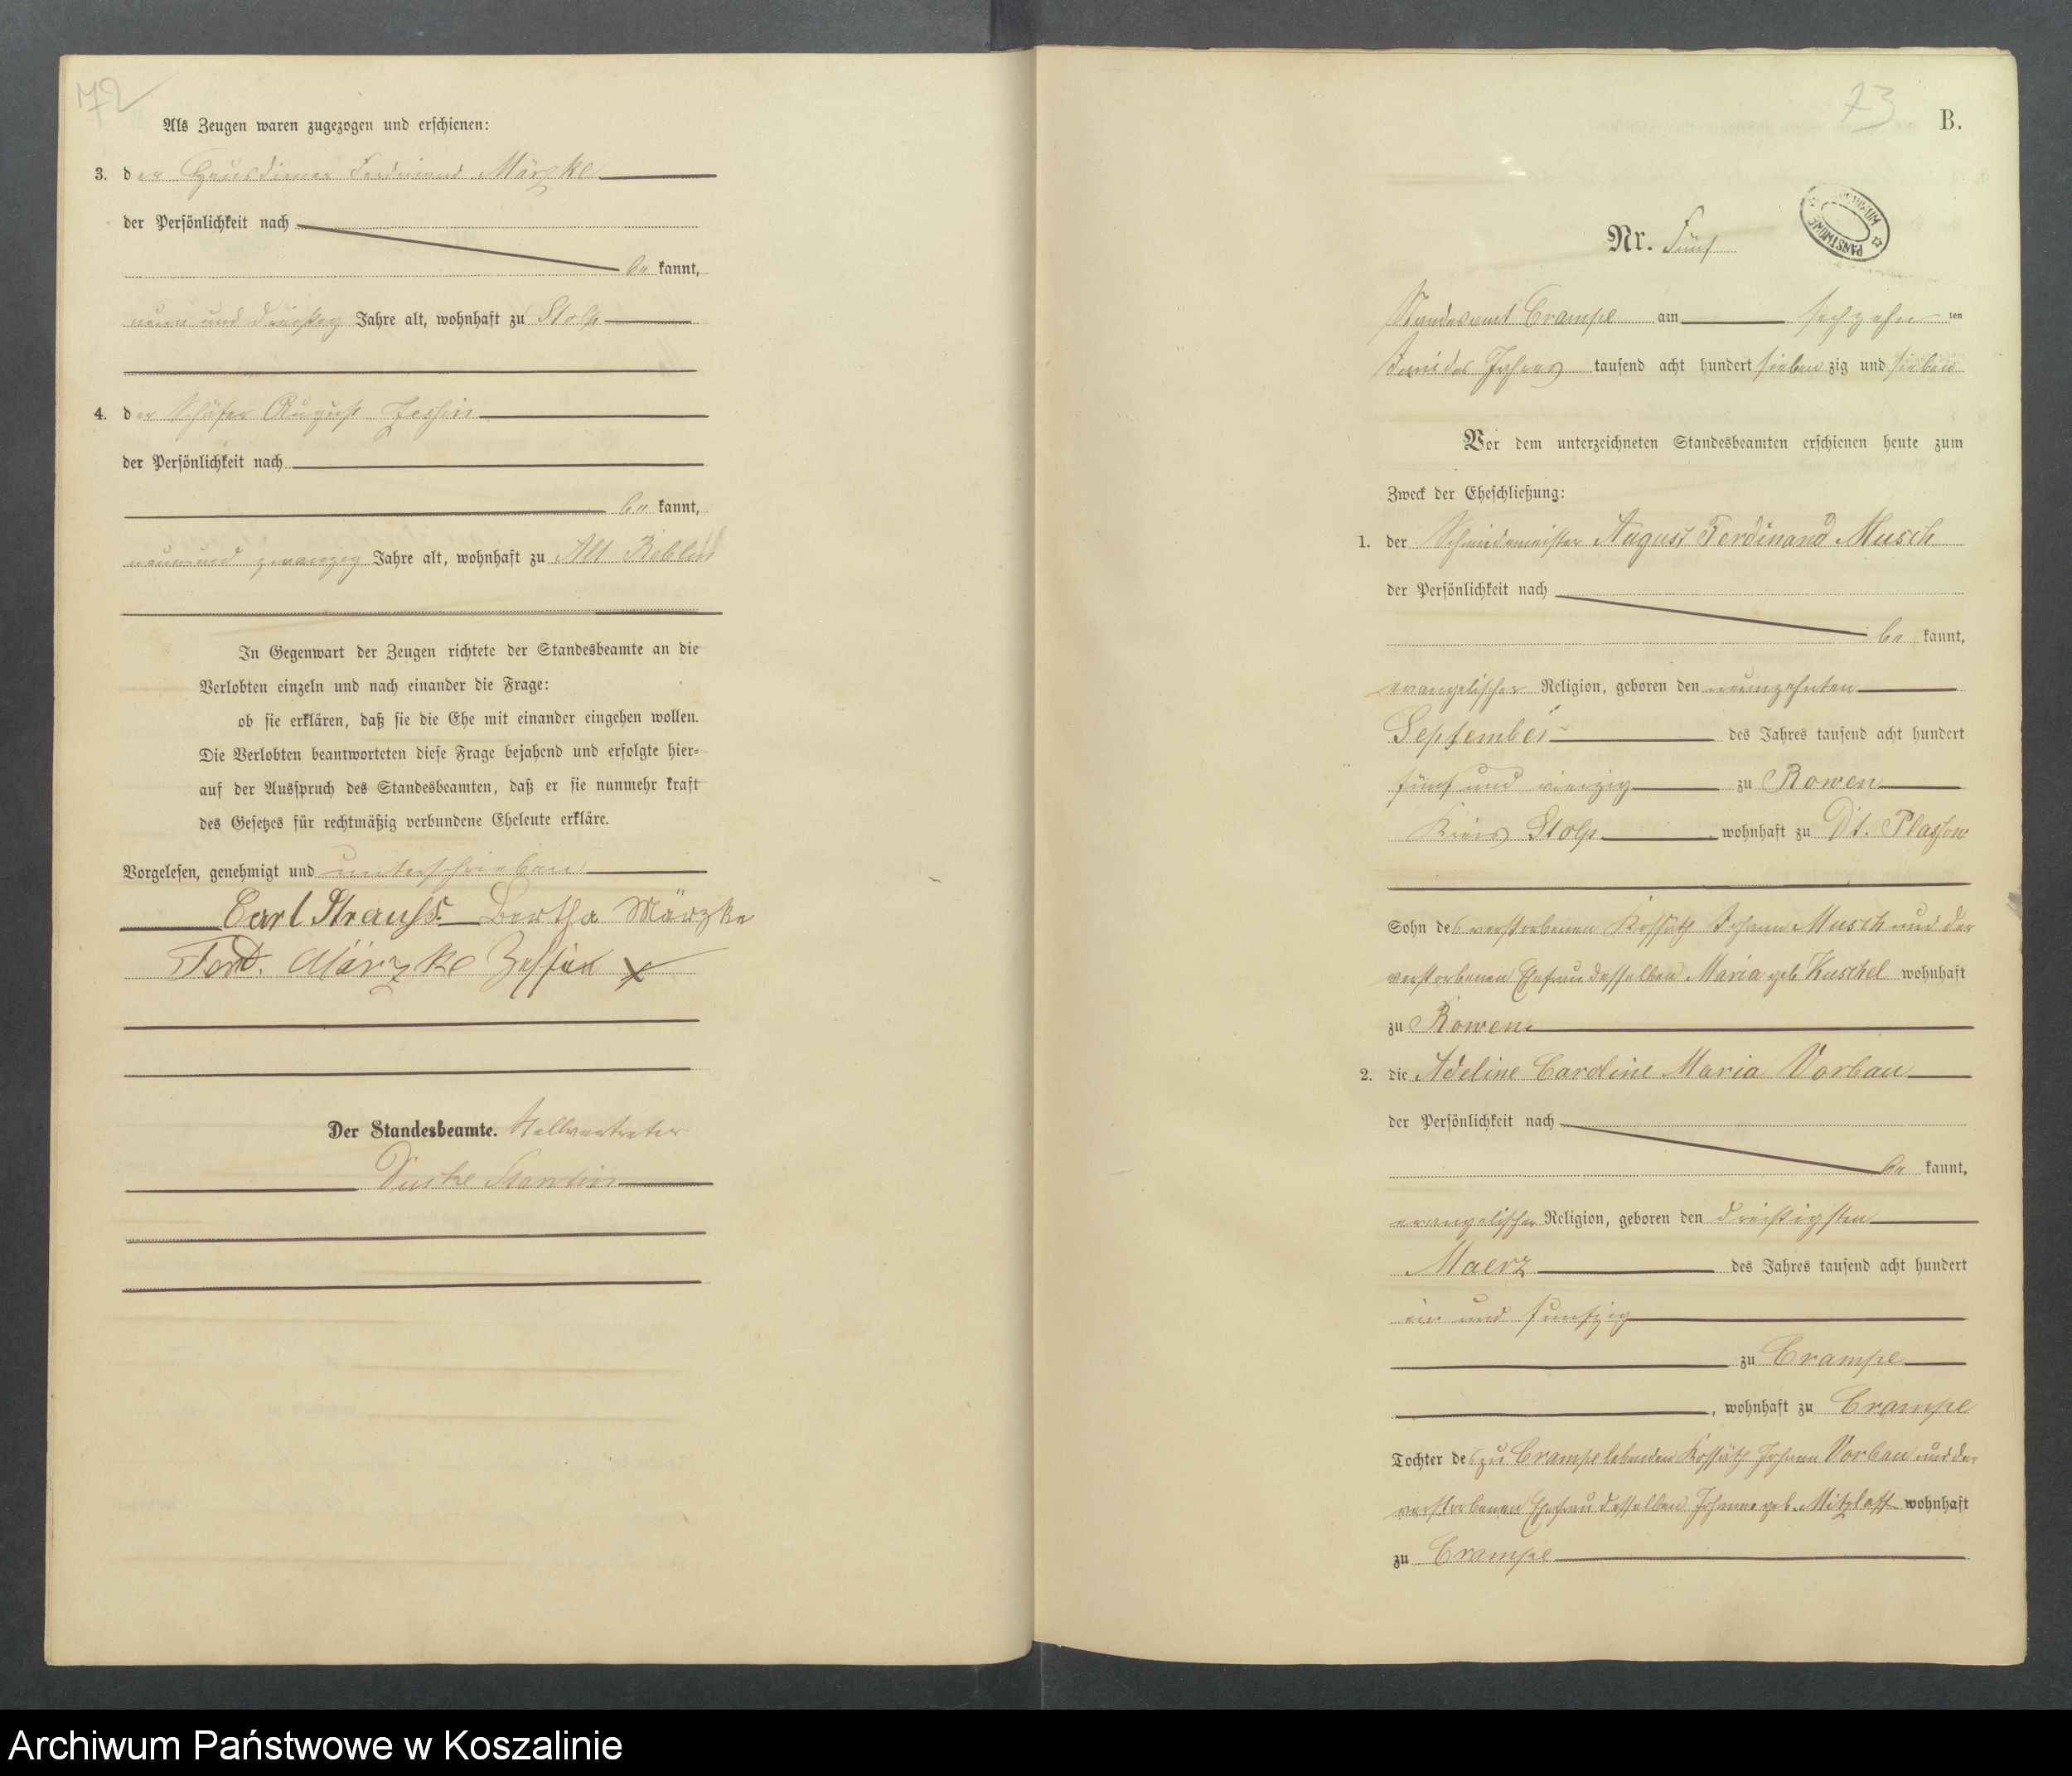 72
Als Zeugen waren zugezogen und erschienen:
3. der Hausdiener Ferdinand Märzke
der Persönlichkeit nach
be kannt,
neun und dreißig Jahre alt, wohnhaft zu Stolp
4. der Schäfer August Zessin
der Persönlichkeit nach
be kannt,
neun und zwanzig Jahre alt, wohnhaft zu Alt Reblin
In Gegenwart der Zeugen richtete der Standesbeamte an die
Verlobten einzeln und nach einander die Frage:
ob sie erklären, daß sie die Ehe mit einander eingehen wollen.
Die Verlobten beantworteten diese Frage bejahend und erfolgte hier=
auf der Ausspruch des Standesbeamten, daß er sie nunmehr kraft
des Gesetzes für rechtmäßig verbundene Eheleute erkläre.
Vorgelesen, genehmigt und unterschrieben
Carl Strauss. Bertha Märzke
Ferd. Märzke Zessin
Der Standesbeamte. Stellvertreter
73
B.
Nr. Fünf
Standesamt Crampe am sechzehn ten
Juni des Jahres tausend acht hundert sieben zig und sieben
Vor dem unterzeichneten Standesbeamten erschienen heute zum
Zweck der Eheschließung:
1. der Schmiedemeister August Ferdinand Musch
der Persönlichkeit nach
be kannt,
evangelischer Religion, geboren den neunzehnten
September des Jahres tausend acht hundert
fünf und vierzig zu Rowen
Kreis Stolp, wohnhaft zu Dt. Plassow
Sohn des verstorbenen Kossäth Johann Musch und der
verstorbenen Ehefrau desselben Maria geb. Kuschel wohnhaft
zu Rowen.
2. die Adeline Caroline Maria Vorbau
der Persönlichkeit nach
be kannt,
evangelischer Religion, geboren den dreißigsten
Maerz des Jahres tausend acht hundert
ein und funfzig
zu Crampe
, wohnhaft zu Crampe
Tochter des zu Crampe lebenden Kossäth Johann Vorbau und der
verstorbenen Ehefrau desselben Johanne geb. Mitzlaff wohnhaft
zu Crampe
Archiwum Państwowe w Koszalinie